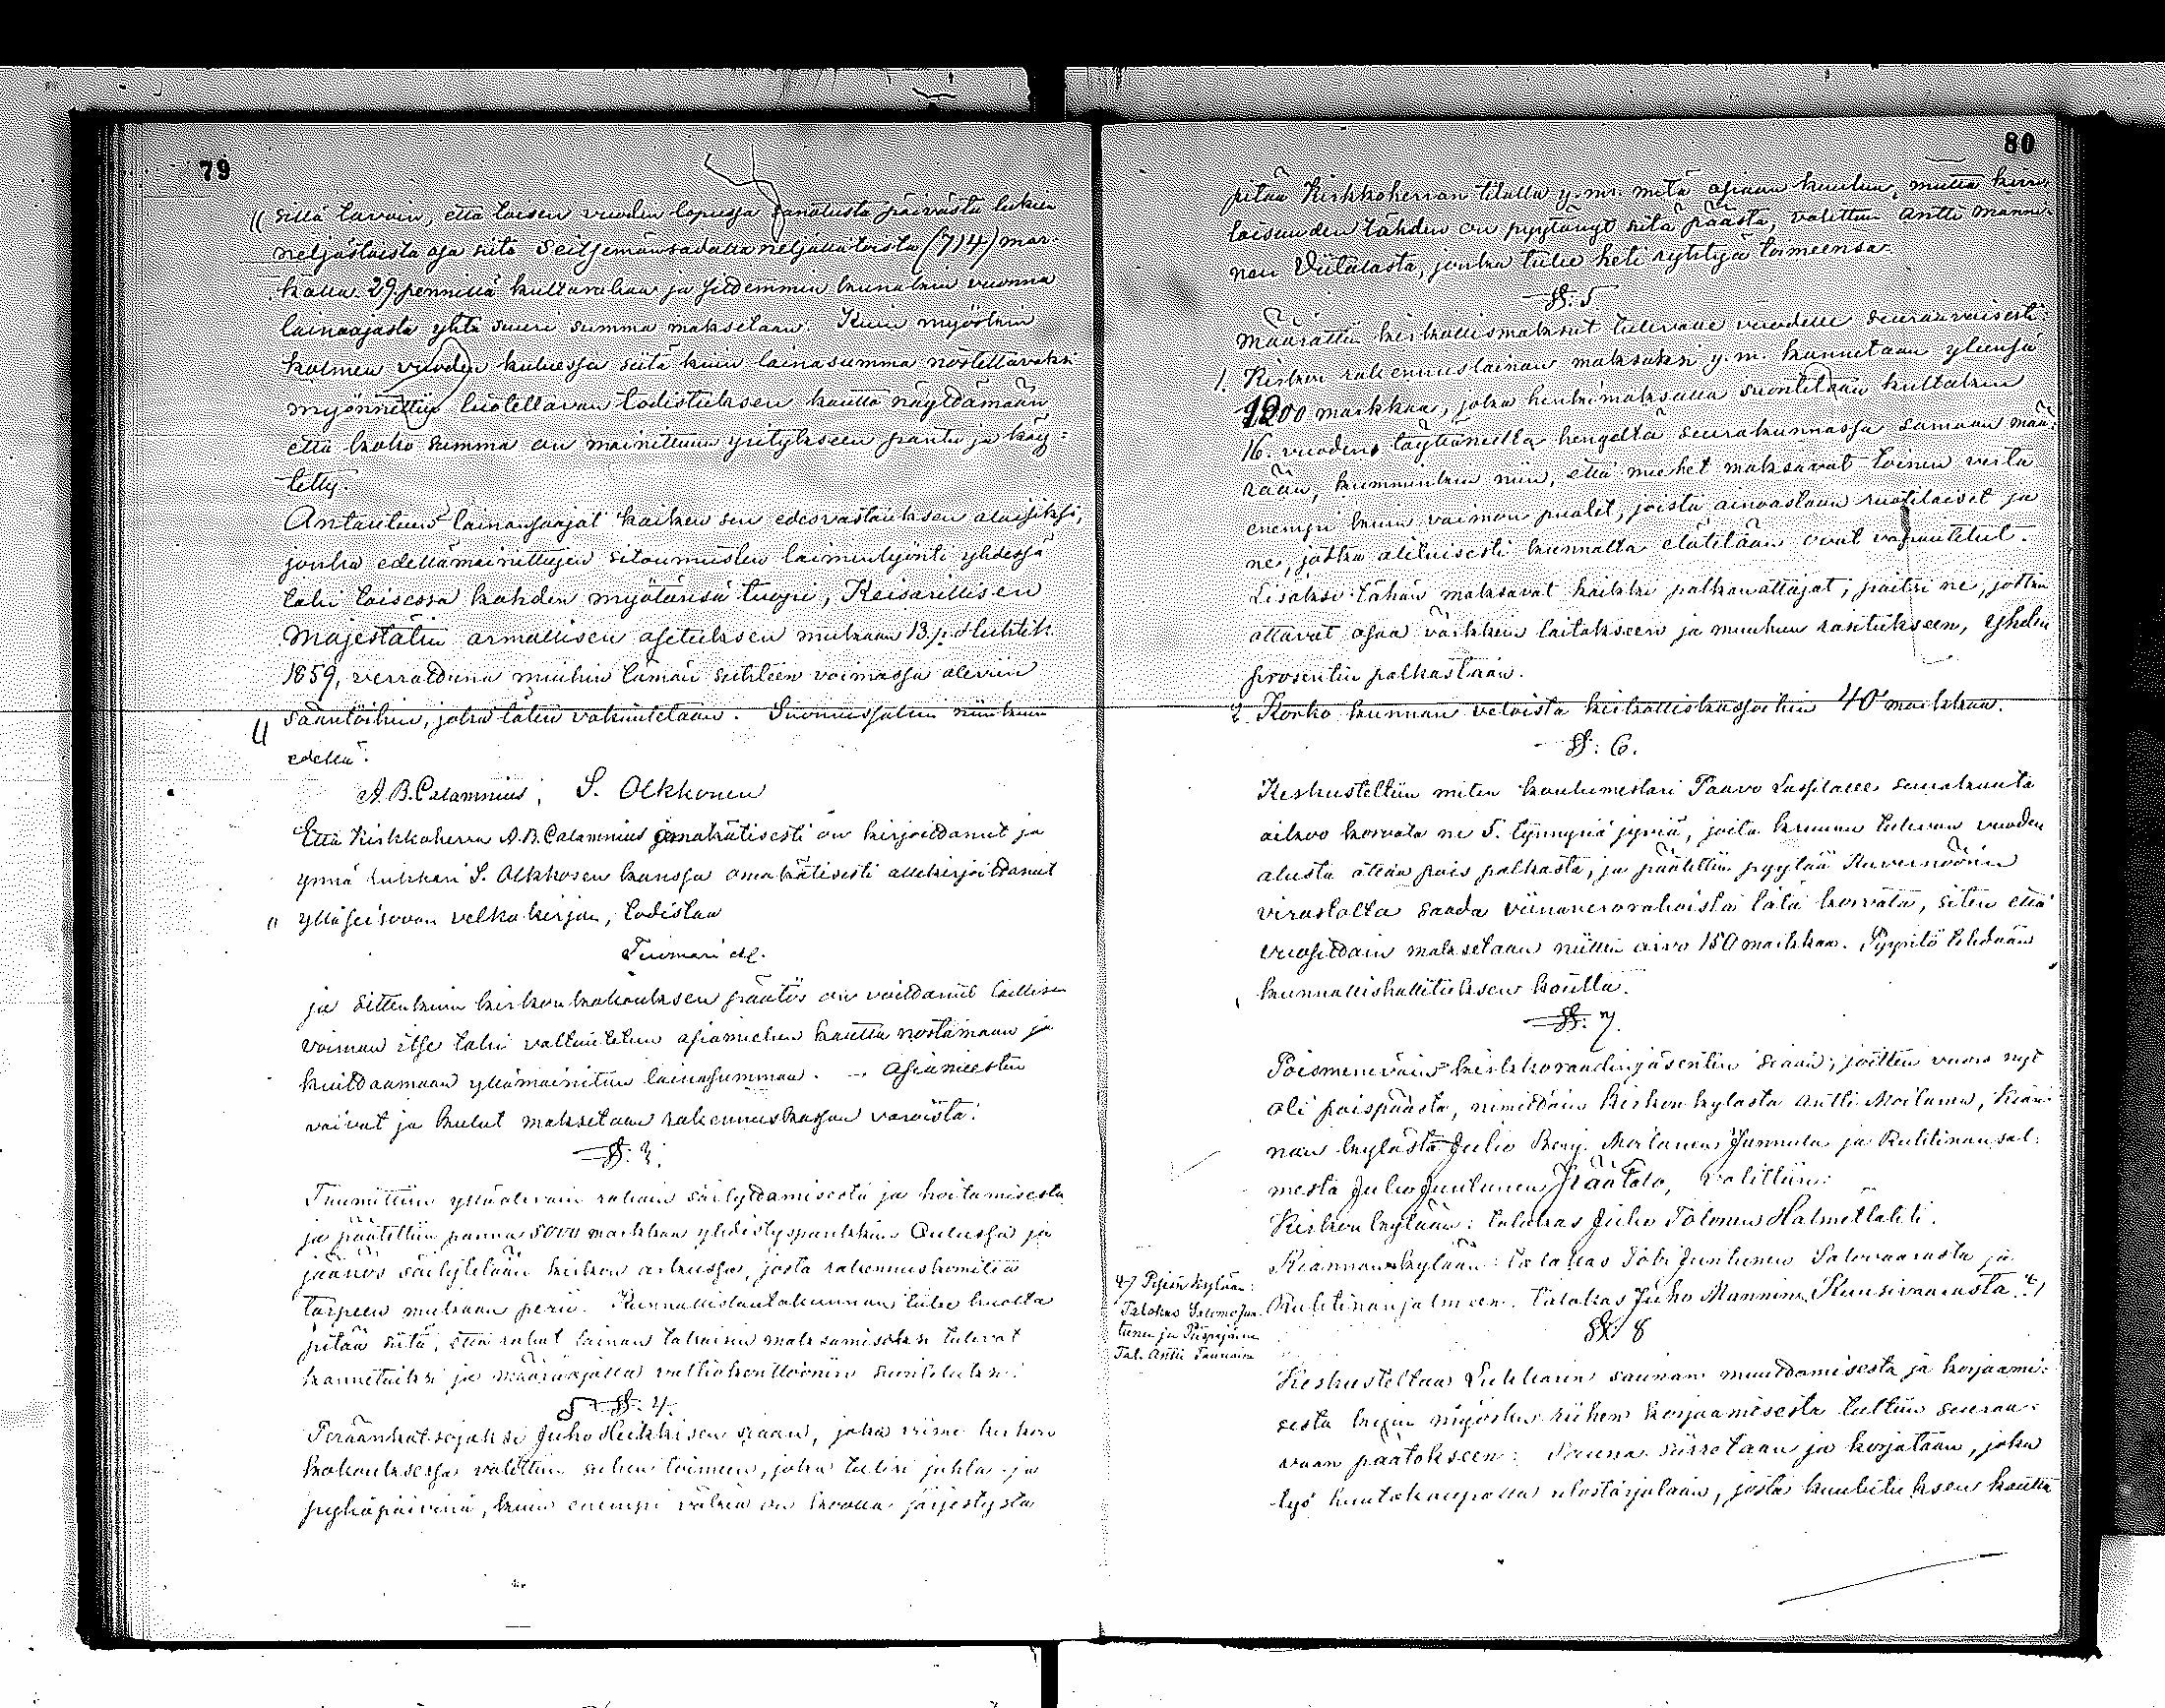 79
sillä tavoin, että toisen vuoden lopussa sanotusta päivästä lukien
neljästoista osa siitä Seitsemänsadalla neljällätoista (714) mar-
kalla 29 pennillä kultarahaa ja sitdemmin kunakin vuonna
lainaajasta yhtä suuri summa maksetaan. Kuin myöskin
kolmen vuoden kuluessa siitä kuin lainasumma nostettavaksi
myönnettiin luotettavan todistuksen kautta näytdämään
että koko summa on mainittuun yritykseen pantu ja käy-
tetty.
Antautuus lainansaajat kaiken sen edesvastauksen alaisiksi,
jonka edellämainittujen sitoumusten laiminlyönti yhdessä
tahi toisessa kohden myötänsä tuopi, Keisarillisen
Majestätin armollisen asetuksen mukaan 13 p. Huhtik.
1859, verratduna muihin tämän suhteen voimassa oleviin
sääntöihin, joka täten vakuutetaan. Suomussalmi niinkuin
edellä.
A. B. Calamnius, S. Olkkonen
Että Kirkkoherra A. B. Calamnius omakätisesti on kirjoitdanut ja
ynnä lukkari S. Olkkosen kanssa omakätisesti allekirjoitdanut
ylläseisovan velkakirjan, todistaa
Tuomari etc.
ja sittenkuin kirkonkokouksen päätös on voitdanut laillisen
voiman itse tahi valtuutetun asiamiehen kautta nostamaan ja
kuitdaamaan yllämainitun lainasumman. Asiamiesten
vaivat ja kulut maksetaan rakennuskassan varoista.
§: 3.
Tuumittiin ylläolevain rahain säilytdämisestä ja hoitamisesta
ja päätettiin panna 5000 markkaa yhdistyspankkiin Oulussa ja
jäännös säilytetään kirkon arkussa, josta rakennuskomitea
tarpeen mukaan perii. Kunnallislautakunnan tulee huolta
pitää siitä, että rahat lainan takaisin maksamiseksi tulevat
kannetuiksi ja määräajalla valtiokonttooriin suoritetuksi.
§: 4.
Peräänkatsojaksi Juho Heikkisen siaan, joka viime kirkon
kokouksessa valittiin siihen toimeen, joka tulisi juhla- ja
pyhäpäivinä, kuin enempi väkeä on koolla järjestystä
80
pitää Kirkkoherran tilalla y. m. mitä asiaan kuuluu, mutta
loisuuden tähden on pyytänyt siitä päästä, valittiin Antti Manni-
nen Viitalasta, jonka tulee heti ryhtyä toimeensa.
§: 5
Määrättiin kirkollismaksut tulevalle vuodelle seuraavaisesti:
1. Kirkon rakennuslainan maksuksi y. m. kannetaan yleensä
1200 markkaa, joka henkimaksulla suoritetaan kultakin
16. vuoden täyttäneeltä hengeltä seurakunnassa samaan mää-
rään, kumminkin niin, että miehet maksavat toinen verta
enempi kuin vaimon puolet, joista ainoastaan ruotilaiset ja
ne, jotka alituisesti kunnalta elätetään ovat vapautetut.
Lisäksi tähän maksavat kaikki palkanottajat, paitsi ne, jotka
ottavat osaa väkkein laitokseen ja muuhun rasitukseen, yhden
prosentin palkastaan.
2. Korko kunnan veloista kirkolliskassahan 40 markkaa.
§: 6.
Keskusteltiin miten koulumestari Paavo Lassilalle seurakunta
aikoo korvata ne 5. tynnyriä jyviä, joita kruunu tulevan vuoden
alusta ottaa pois palkasta, ja päätettiin pyytää Kuvernöörin
virastolta saada viinanverorahoista tätä korvata, siten että
vuositdain maksetaan niitten arvo 150 markkaa. Pyyntö tehdään
kunnallishallituksen kautta.
§: 7.
Poismeneväin kirkkoraadinjäsenten siaan, joitten vuoro nyt
oli poispäästä, nimitdäin Kirkonkylästä Antti Moilanen, Kian-
nan kylästä Juho Benj. Moilanen Junnula ja Ruhtinansal-
mesta Juho Juntunen Jäätalo, valittiin:
Kirkonkylään: talokas Juho Tolonen Halmetlahti.
Kiannankylään: talokas Tobi Juntunen Salovaarasta ja
Ruhtinansalmeen. talokas Juho Manninen Kuusivaarasta. x)
x) Pisjön kylään:
Talokas Salomo Jun-
tunen ja Piispajärvi
Tal. Antti
§: 8
Keskusteltaa Lukkarin saunan muutdamisesta ja korjaami-
sesta kuin myöskin riihen korjaamisesta tultiin seuraa-
vaan päätökseen: Sauna siirretään ja korjataan, joka
työ huutokaupalla ulostarjotaan, josta kuulutuksen kautta